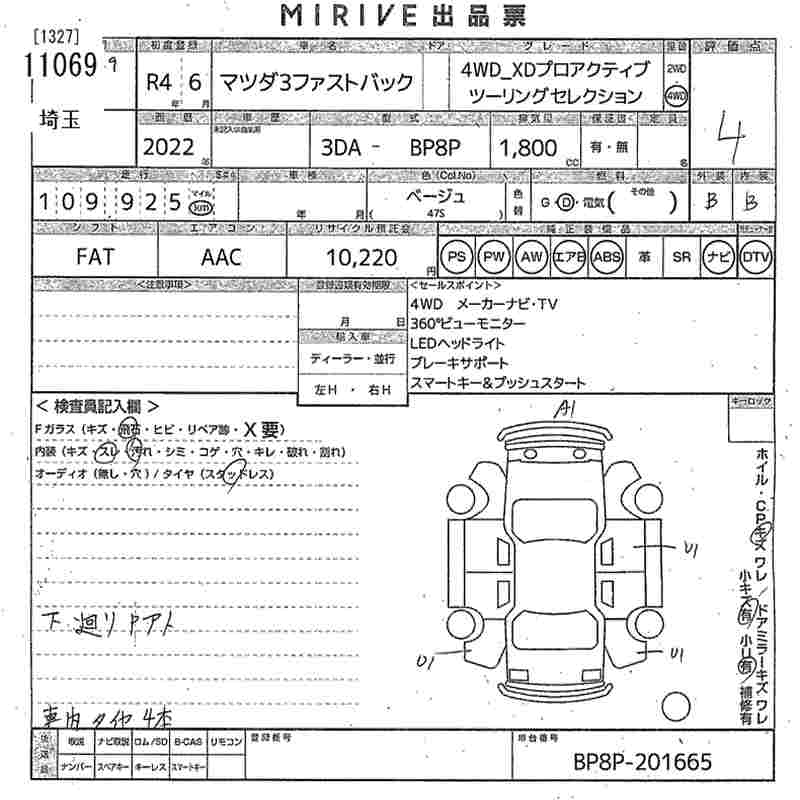 MIRIVE 出品票
[1327]
11069 9
埼玉
初度登録 車名 ドア グレード 駆動 評価点
R4 年 6 月 マツダ3ファストバック 4WD_XDプロアクティブ
ツーリングセレクション 2WD 4WD 4
西暦 車歴 型式 排気量 保証書 定員 外装 内装
2022 年 未記入は自家用 3DA - BP8P 1,800 CC 有・無 名 B B
走行 車検 色(Col.No) 燃料
109925 マイル km 年 月 ベージュ ( 47S ) 色替 G・D・電気( その他 )
シフト エアコン リサイクル預託金 純正装備品
FAT AAC 10,220 円 PS PW AW エアB ABS 革 SR ナビ DTV
<注意事項> 登録書類有効期限 <セールスポイント>
月 日
4WD メーカーナビ・TV
360°ビューモニター
LEDヘッドライト
ブレーキサポート
スマートキー&プッシュスタート
輸入車
ディーラー・並行
左H ・ 右H
<検査員記入欄> キーロック
Fガラス(キズ・飛石・ヒビ・リペア跡・X要)
内装(キズ・スレ・汚れ・シミ・コゲ・穴・キレ・破れ・割れ)
オーディオ(無し・穴)/タイヤ(スタッドレス)
A1
U1
U1
U1
ホイル・CPキズ ワレ/ドアミラーキズ ワレ
小キズ有 小U有 補修有
下廻りPアト
車内タイヤ4本
後送品 取説 ナビ取説 ロム/SD B-CAS リモコン 登録番号 車台番号
ナンバー スペアキー キーレス スマートキー BP8P-201665